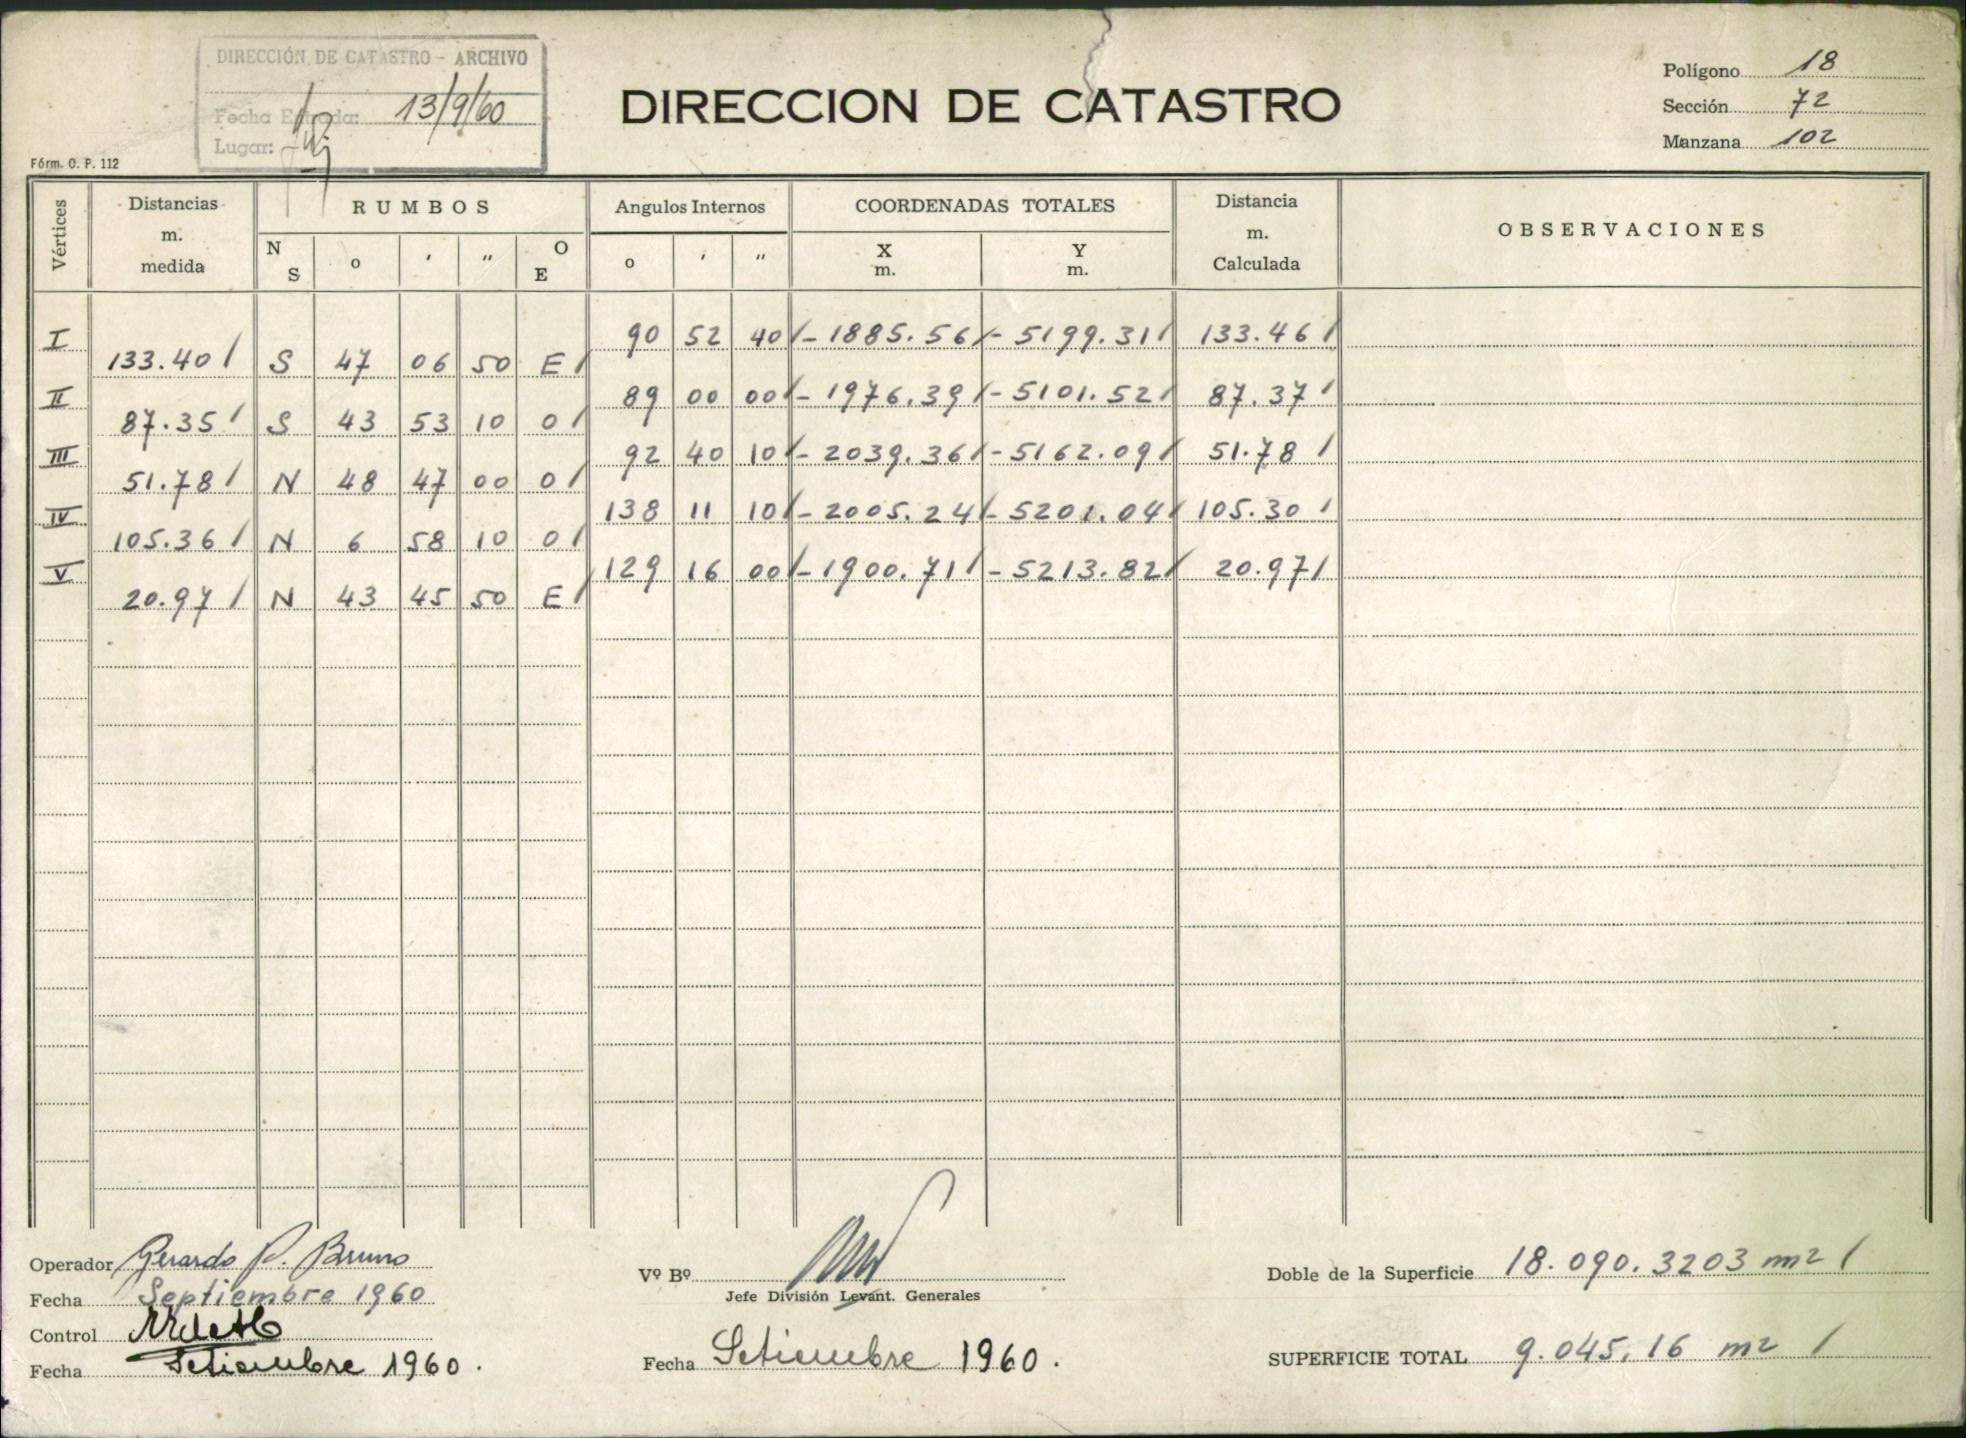 DIRECCIÓN DE CATASTRO - ARCHIVO
Fecha Entrada: 13/9/60
Lugar:
Fórm. O. P. 112
DIRECCION DE CATASTRO
Polígono 18
Sección 72
Manzana 102
Vértices
Distancias m. medida
RUMBOS
Angulos Internos
COORDENADAS TOTALES
Distancia m. Calculada
OBSERVACIONES
N S o ' " O E
o ' "
X m. Y m.
I 90 52 40 - 1885.56 - 5199.31 133.46
133.40 S 47 06 50 E
II 89 00 00 - 1976.39 - 5101.52 87.37
87.35 S 43 53 10 O
III 92 40 10 - 2039.36 - 5162.09 51.78
51.78 N 48 47 00 O
IV 138 11 10 - 2005.24 - 5201.04 105.30
105.36 N 6 58 10 O
V 129 16 00 - 1900.71 - 5213.82 20.97
20.97 N 43 45 50 E
Operador Gerardo P. Bruno
Fecha Septiembre 1960
Control
Fecha Setiembre 1960.
Vº Bº
Jefe División Levant. Generales
Fecha Setiembre 1960.
Doble de la Superficie 18.090.3203 m2
SUPERFICIE TOTAL 9.045,16 m2